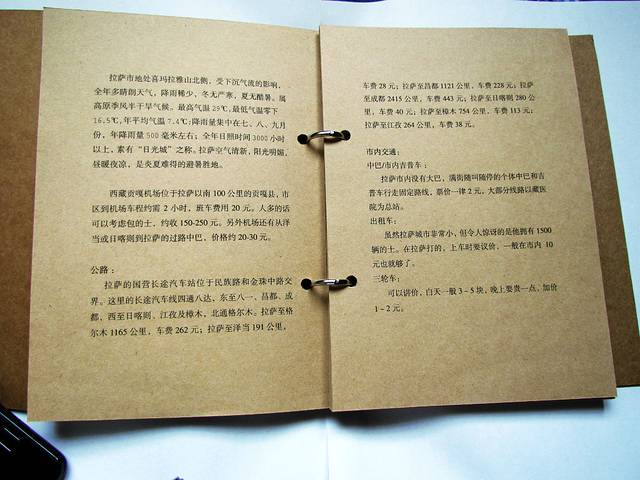 拉萨市地处喜玛拉雅山北侧，受下沉气流的影响，
全年多晴朗天气，降雨稀少，冬无严寒，夏无酷暑。属
高原季风半干旱气候。最高气温 29℃，最低气温零下
16.5℃，年平均气温 7.4℃；降雨量集中在七、八、九月
份，年降雨量 500 毫米左右；全年日照时间 3000 小时
以上，素有“日光城”之称。拉萨空气清新，阳光明媚，
昼暖夜凉，是炎夏难得的避暑胜地。
西藏贡嘎机场位于拉萨以南 100 公里的贡嘎县，市
区到机场车程约需 2 小时，班车费用 20 元，人多的话
可以考虑包的士，约收 150-250 元。另外机场还有从泽
当或日喀则到拉萨的过路中巴，价格约 20-30 元。
公路：
拉萨的国营长途汽车站位于民族路和金珠中路交
界。这里的长途汽车线四通八达，东至八一、昌都、成
都，西至日喀则、江孜及樟木，北通格尔木。拉萨至格
尔木 1165 公里，车费 262 元；拉萨至泽当 191 公里，
车费 28 元；拉萨至昌都 1121 公里，车费 228 元；拉萨
至成都 2415 公里，车费 443 元；拉萨至日喀则 280 公
里，车费 40 元；拉萨至樟木 754 公里，车费 113 元；
拉萨至江孜 264 公里，车费 38 元。
市内交通：
中巴/市内吉普车：
拉萨市内没有大巴，满街随叫随停的个体中巴和吉
普车行走固定路线，票价一律 2 元，大部分线路以藏医
院为总站。
出租车：
虽然拉萨城市非常小，但令人惊讶的是他拥有 1500
辆的士。在拉萨打的，上车时要议价，一般在市内 10
元也就够了。
三轮车：
可以讲价，白天一般 3－5 块，晚上要贵一点，加价
1－2 元。